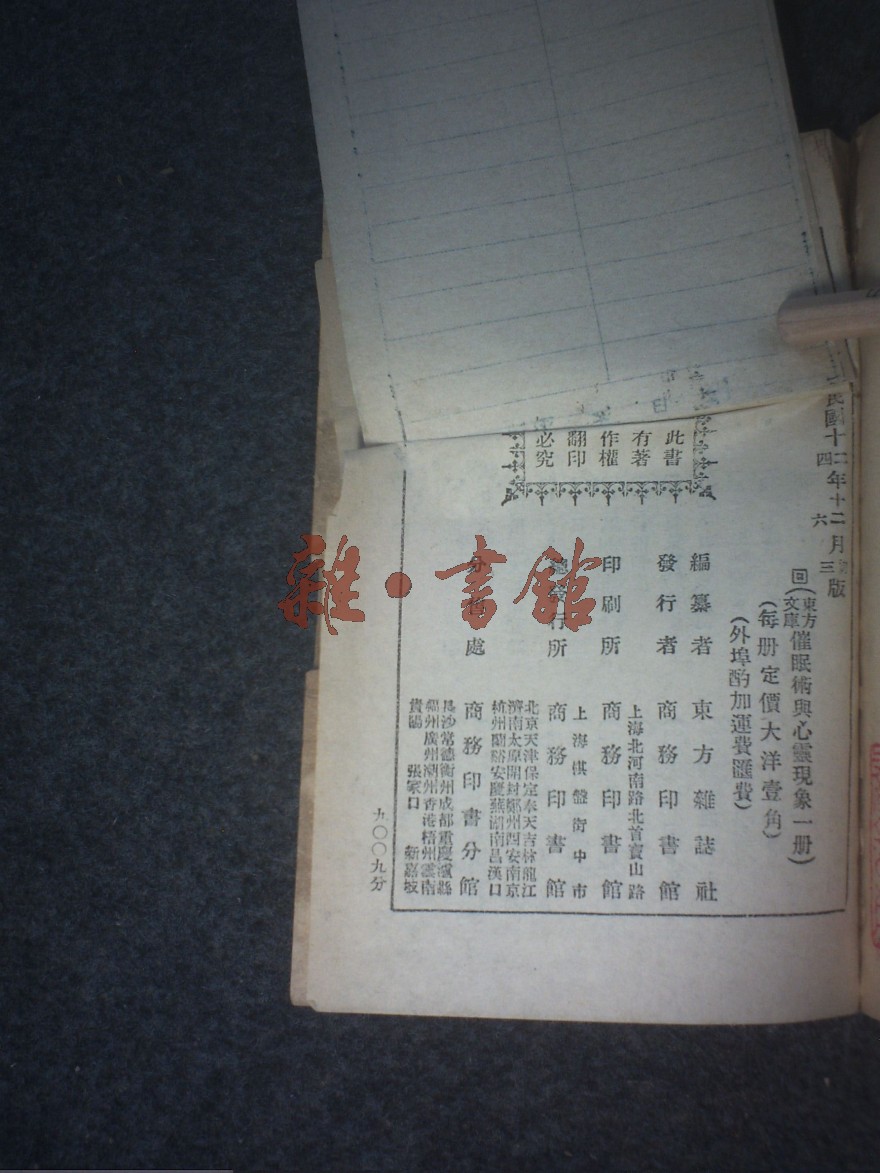 民國十二年十二月
四 六 三版
回(東方文庫)催眠術與心靈現象一册)
(每册定價大洋壹角)
(外埠酌加運費匯費)
此書
有著
作權
翻印
必究
編纂者 東方雜誌社
發行者 商務印書館
上海北河南路北首寶山路
印刷所 商務印書館
上海棋盤街中市
總發行所 商務印書館
北京天津保定奉天吉林龍江
濟南太原開封鄭州西安南京
杭州蘭谿安慶蕪湖南昌漢口
分售處 商務印書分館
長沙常德衡州成都重慶瀘縣
福州廣州潮州香港梧州雲南
貴陽 張家口 新嘉坡
九〇〇九分
雜·書館